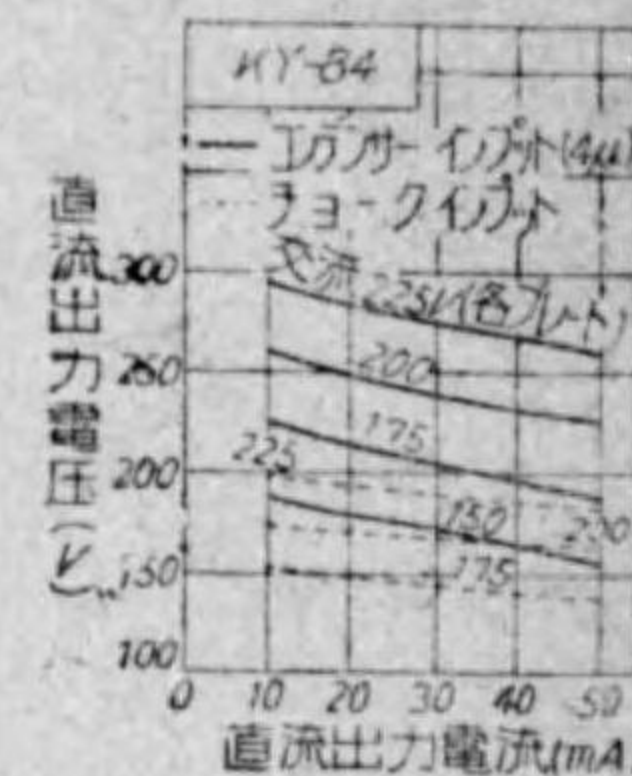 KY-84
コンデンサーインプット(4μ
チョークインプット
交流 225V(各プレート)
200
175
225
150
200
175
直流出力電圧(V)
300
250
200
150
100
0 10 20 30 40 50
直流出力電流(mA